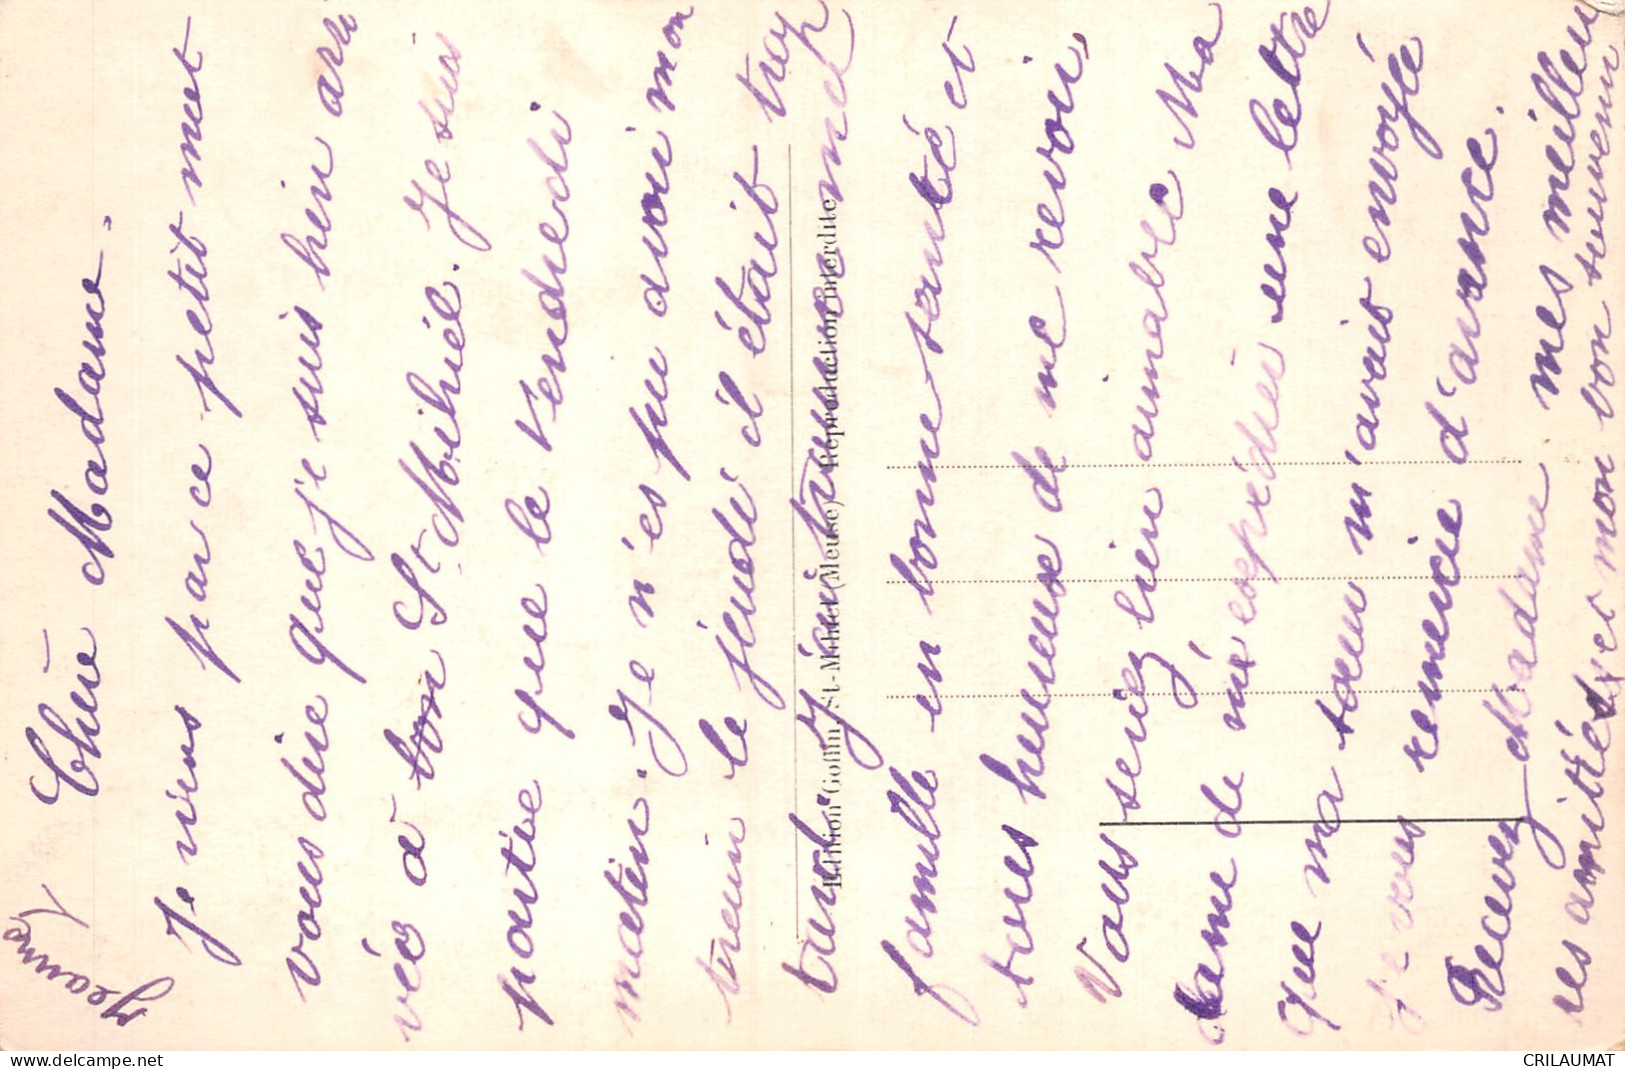 Chère Madame.
Je viens par ce petit mot
vous dire que j'e suis bien arri
vée à bon St. Mihiel. Je suis
partie que le Vendredi
matin. Je n'es pu avoir mon
train le jeudi il était trop
tard. J'ai trouve ma
famille en bonne santé et
tous heureuse de me revoir,
Vous seriez bien aimable Ma
dame de m'éxspédier une lettre
que ma sœur m'avait envoyée
Je vous remercie d'avance.
Recevez Madame mes meilleu
res amitiés et mon bon souvenir
Jeanne
Edition Collin, St-Mihiel (Meuse) Reproduction interdite
delcampe.net
CRILAUMAT